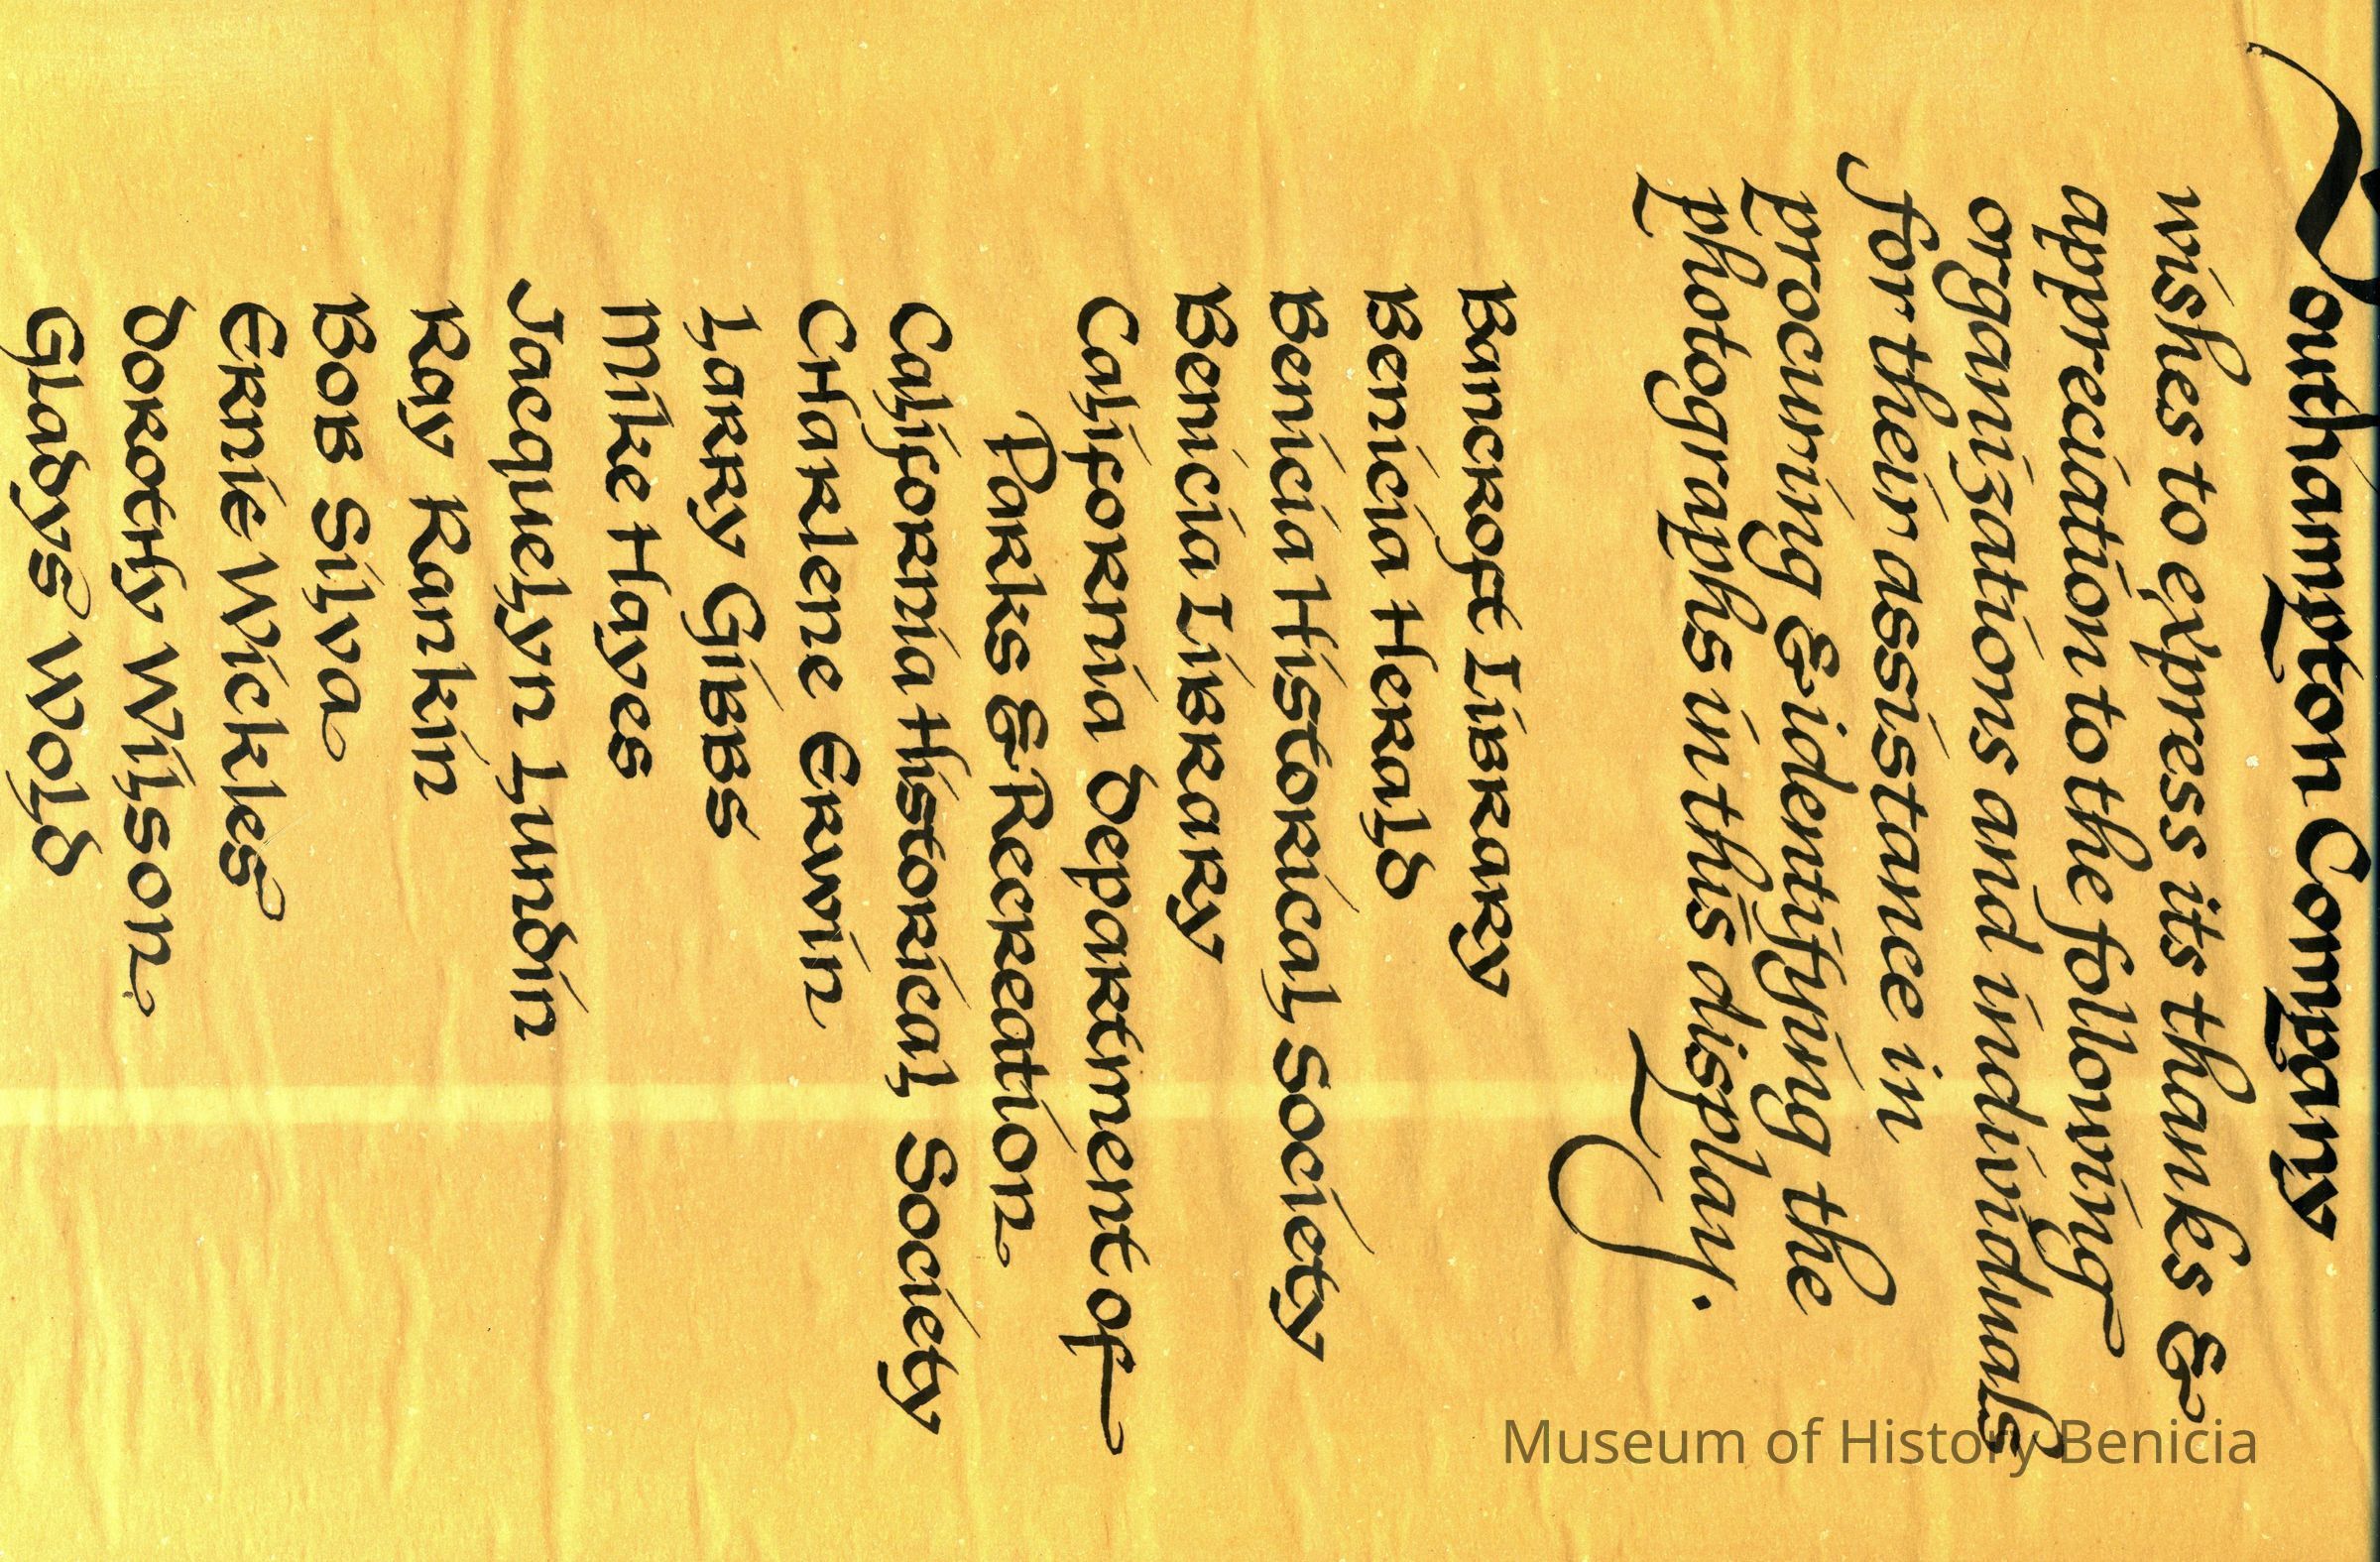 Southampton Company
wishes to express its thanks &
appreciation to the following
organizations and individuals
for their assistance in
procuring & identifying the
photographs in this display.
Bancroft Library
Benicia Herald
Benicia Historical Society
Benicia Library
California Department of
Parks & Recreation
California Historical Society
Charlene Erwin
Larry Gibbs
Mike Hayes
Jacquelyn Lundin
Ray Rankin
Bob Silva
Ernie Wickles
Dorothy Wilson
Gladys Wold
Museum of History Benicia